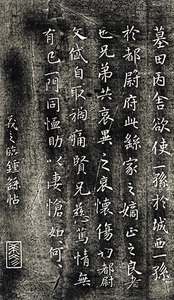 墓田丙舍欲使一孫於城西一孫
於都尉府此繇家之嫡正之良者
也兄弟共哀異之哀懷傷切都尉
文岱自取禍痛賢兄慈篤情無
有已一門同恤助以悽愴如何〻
羲之臨鍾繇帖